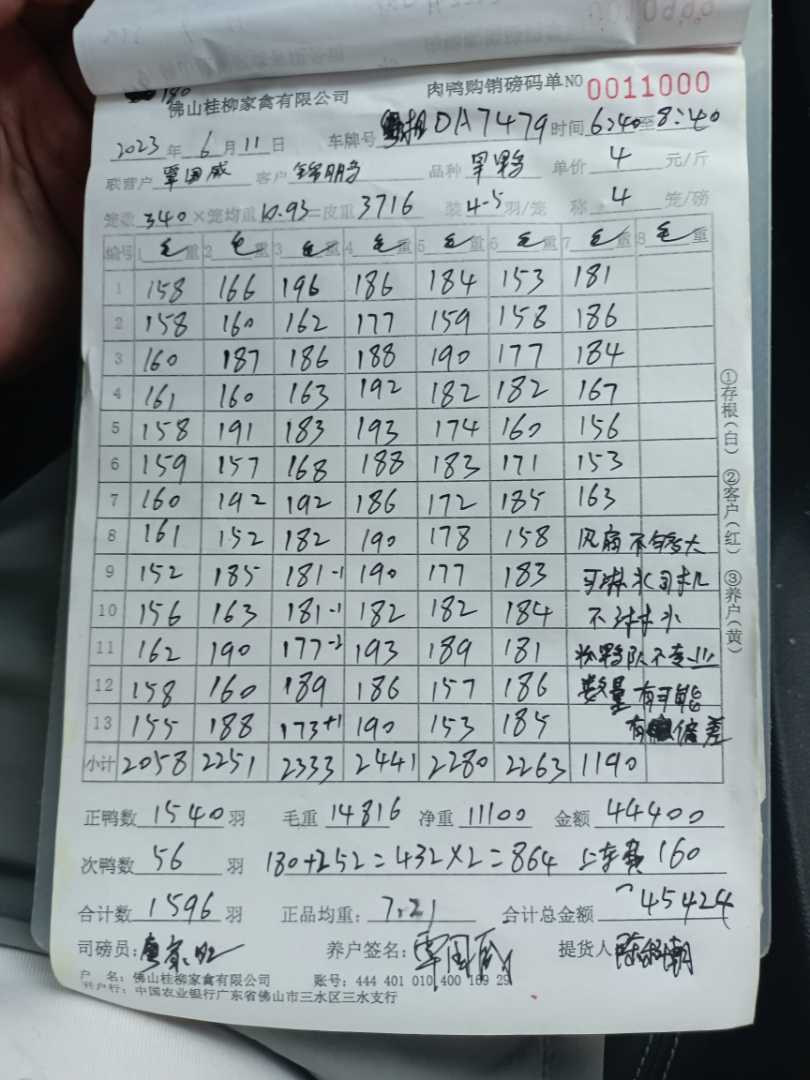 180
佛山桂柳家禽有限公司 肉鸭购销磅码单NO 0011000
2023年6月11日 车牌号 DA7479 时间 6:40至8:40
联营户 覃国威 客户 锦朋 品种 单价 4 元/斤
笼数 340×笼均重 10.93=皮重 3716 装 4-5 羽/笼 称 4 笼/磅
编号 1 毛重 2 毛重 3 毛重 4 毛重 5 毛重 6 毛重 7 毛重 8 毛重
1 158 166 196 186 184 153 181
2 158 160 162 177 159 158 186
3 160 187 186 188 190 177 184
4 161 160 163 192 182 182 167
5 158 191 183 193 174 160 156
6 159 157 168 188 183 171 153
7 160 192 192 186 172 185 163
8 161 152 182 190 178 158 风扇不够大
9 152 185 181-1 190 177 183 可淋水司机
10 156 163 181-1 182 182 184 不淋水
11 162 190 177-2 193 189 181 鸭队不专业
12 158 160 189 186 157 186 数量有可能
13 155 188 173+1 190 153 185 有偏差
小计 2058 2251 2333 2441 2280 2263 1190
正鸭数 1540 羽 毛重 14816 净重 11100 金额 44400
次鸭数 56 羽 180+252=432×2=864 上车费 160
合计数 1596 羽 正品均重: 7.21 合计总金额 45424
司磅员: 养户签名: 覃国威 提货人
户 名: 佛山桂柳家禽有限公司 账号: 444 401 010 400 169 29
开户行: 中国农业银行广东省佛山市三水区三水支行
①存根(白) ②客户(红) ③养户(黄)